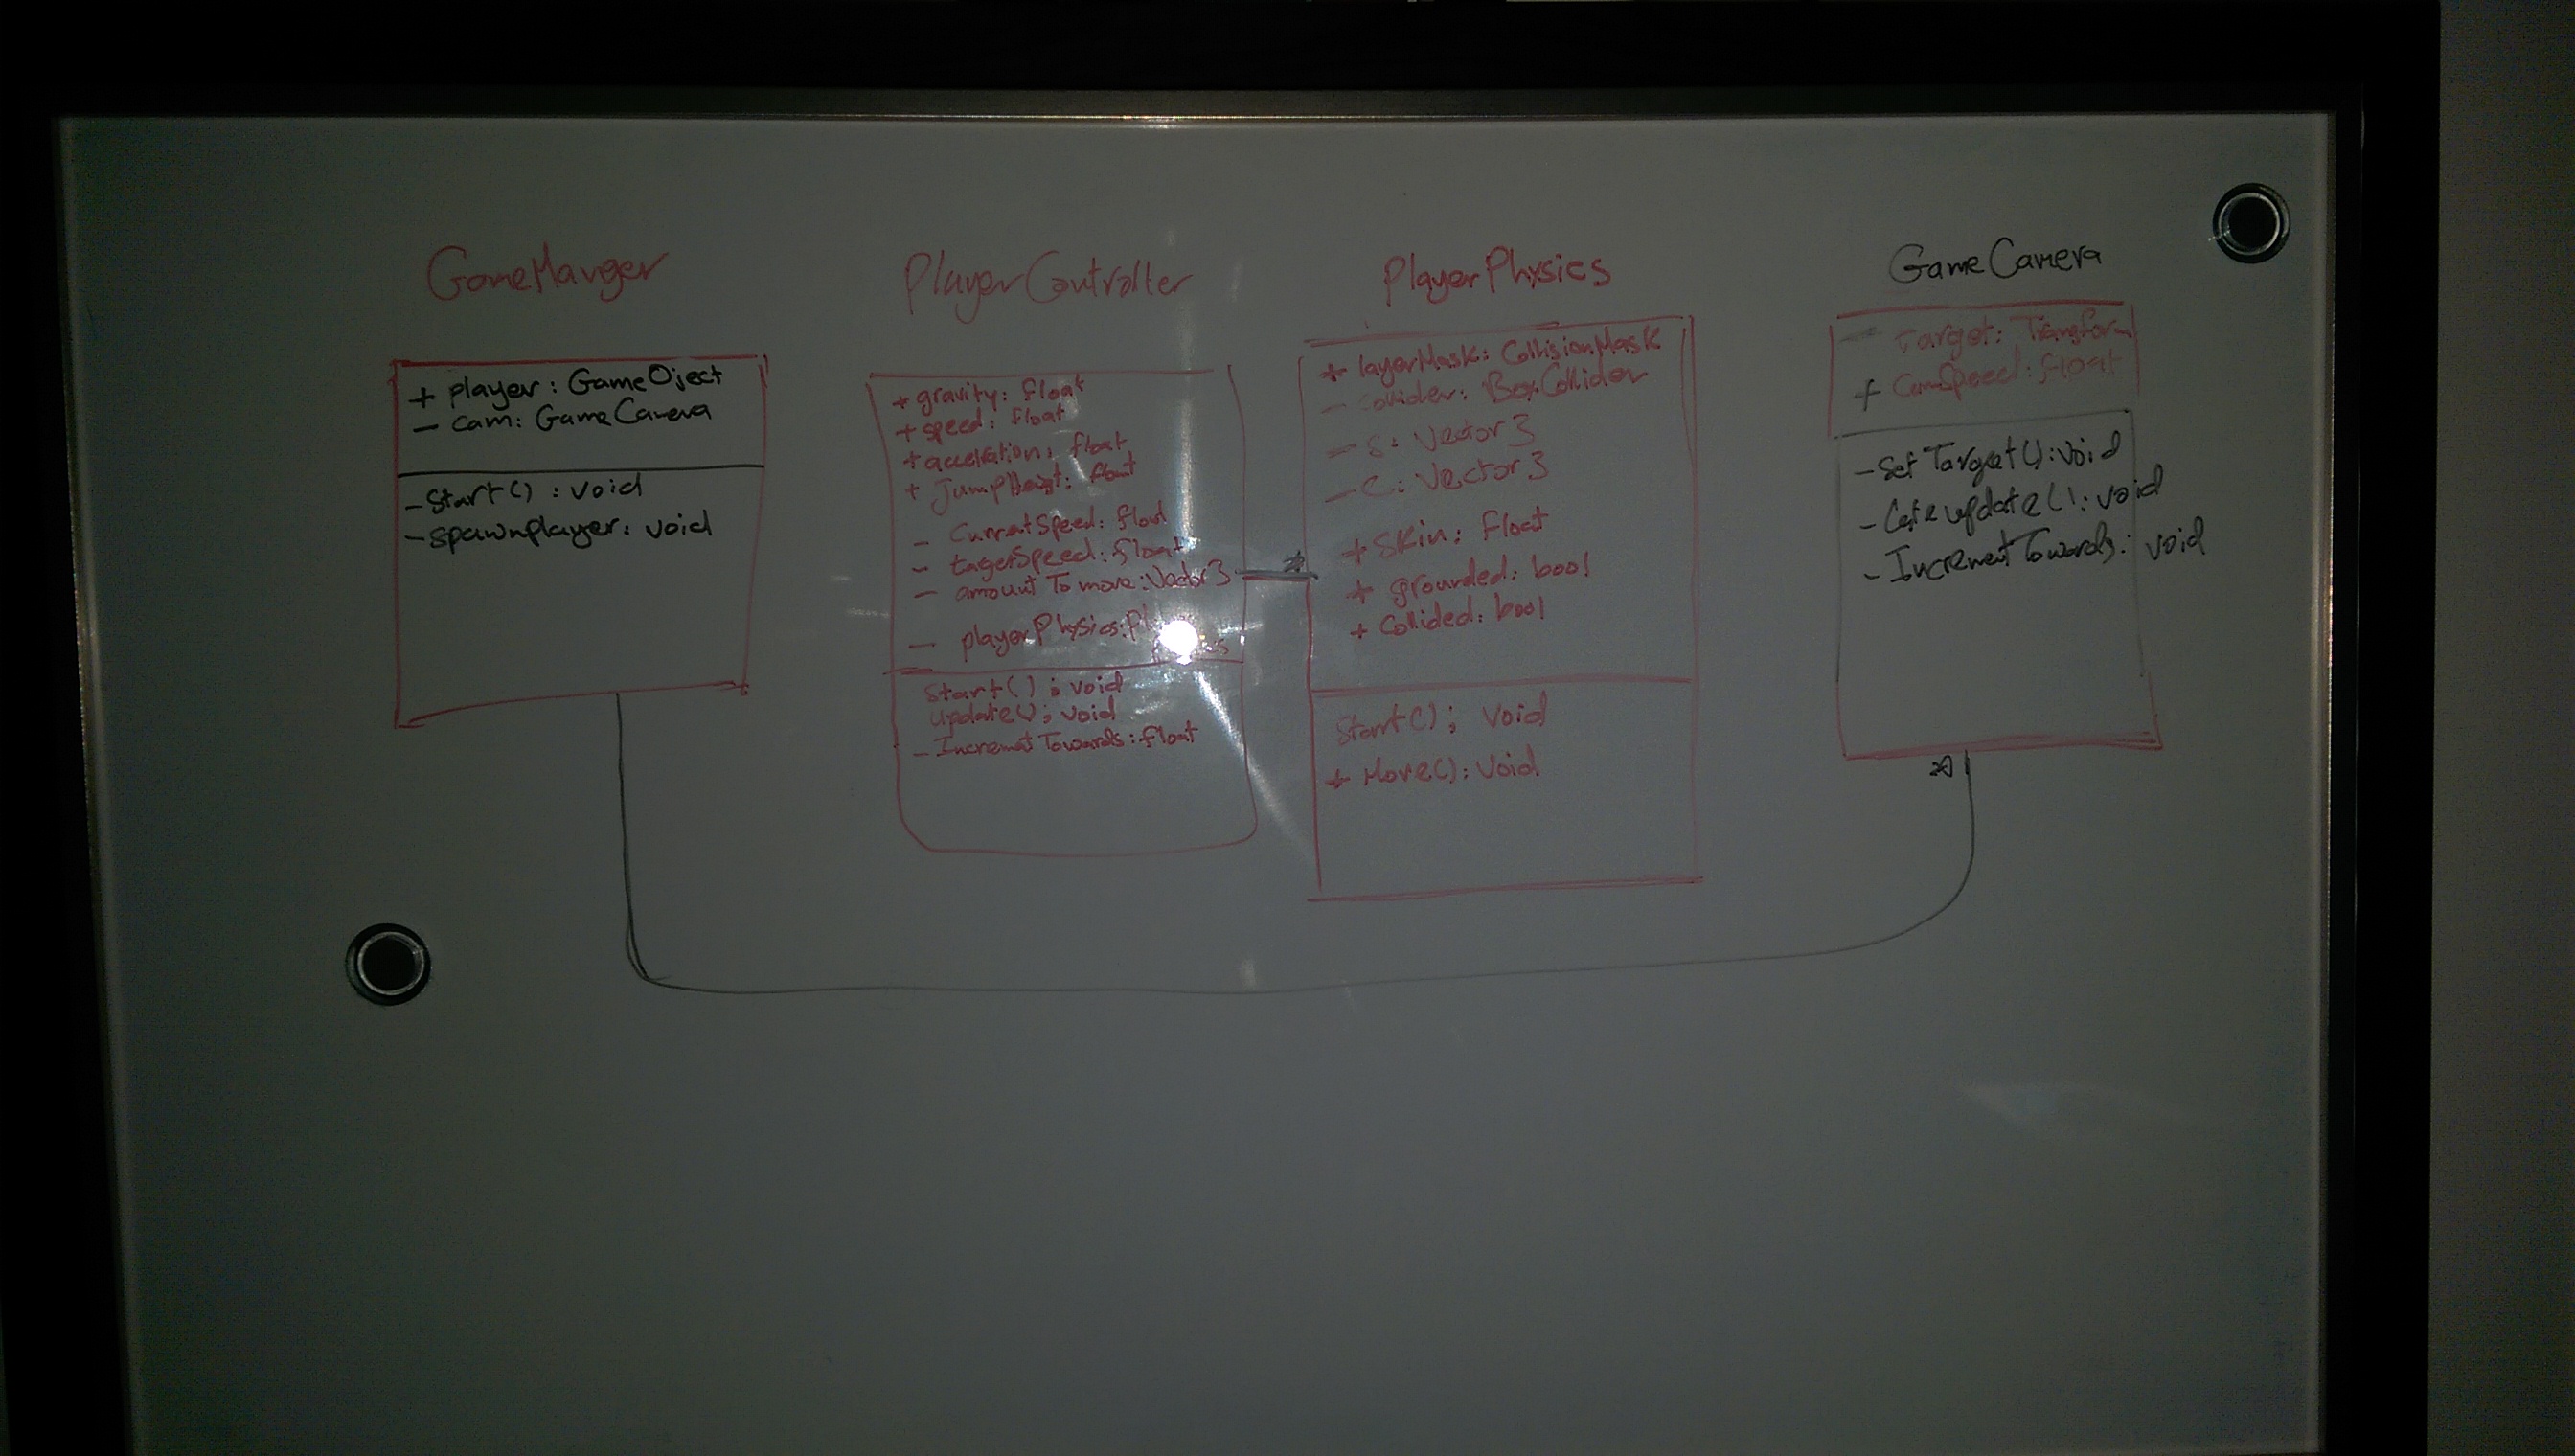 GameManger
+ player: GameOject
- cam: GameCamera
- Start() : void
- spawnplayer: void
PlayerController
+ gravity: float
+ speed: float
+ accelration: float
+ JumpHeigt: float
- CurrentSpeed: float
- tagerSpeed: float
- amount To move: Vector3
- playerPhysics:
Start() ; void
update() ; void
- Increment Towards: float
PlayerPhysics
+ layerMask: CollisionMask
- collider: BoxCollider
- S: Vector3
- C: Vector3
+ Skin: Float
+ grounded: bool
+ Collided: bool
Start() ; void
+ Move(): Void
GameCamera
- Target: Transform
+ CamSpeed: float
- Set Target(): void
- update(): void
- Increment Towards: void